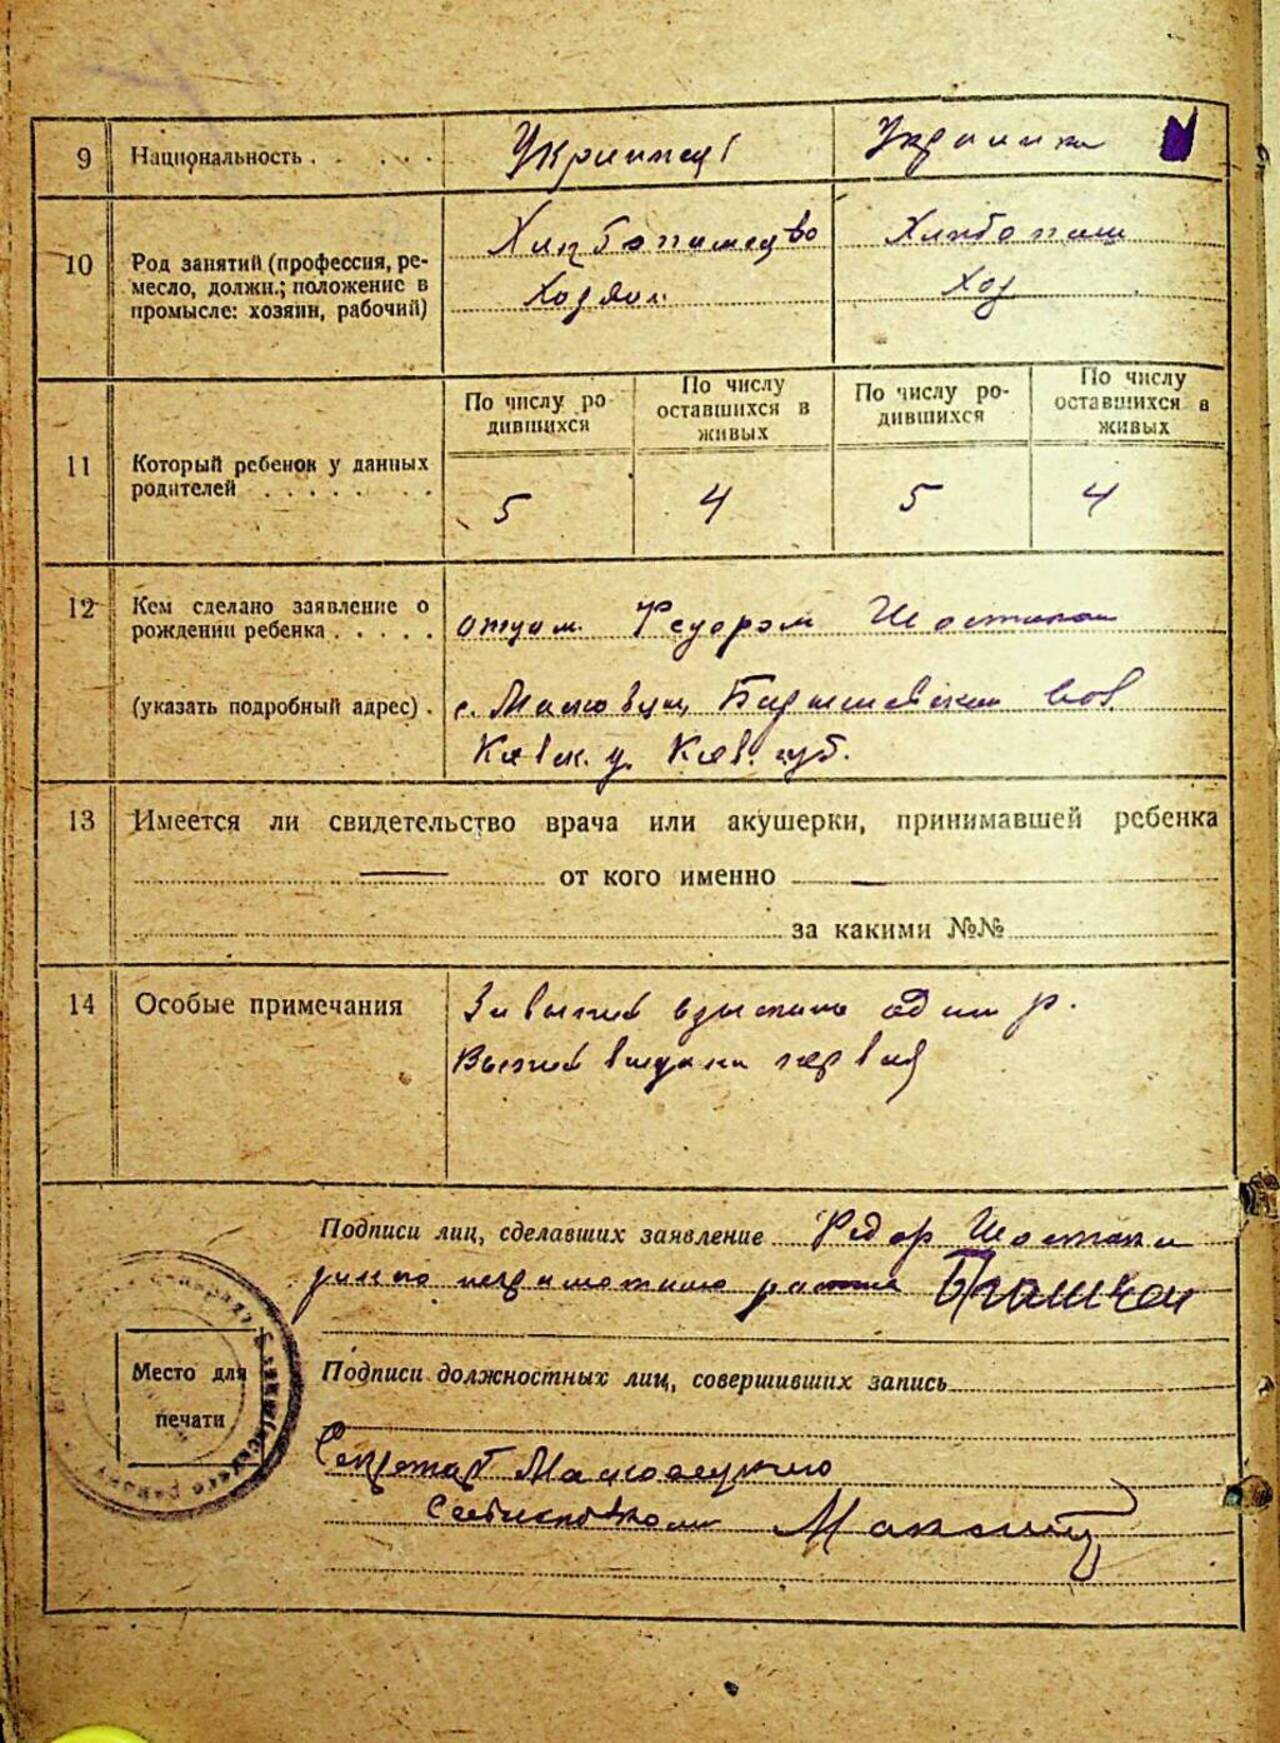 9 Национальность . . . . . Украинец Украинка
10 Род занятий (профессия, ре-
месло, должн.; положение в
промысле: хозяин, рабочий)
Хлебопашество Хлебопаш
Хозяин Хоз
11 Который ребенок у данных
родителей . . . . . . .
По числу ро-
дившихся
По числу
оставшихся в
живых
По числу ро-
дившихся
По числу
оставшихся в
живых
5 4 5 4
12 Кем сделано заявление о
рождении ребенка . . . . .
отцом Федором
(указать подробный адрес) .
с. Масковци, Барышевской вол
Киевск. у. Киев. губ.
13 Имеется ли свидетельство врача или акушерки, принимавшей ребенка
— от кого именно —
за какими №№
14 Особые примечания
За выпис взыскано один р.
Выпис видана первая
Подписи лиц, сделавших заявление Федор
неграмотного
Место для
печати
Подписи должностных лиц, совершивших запись
Секретарь